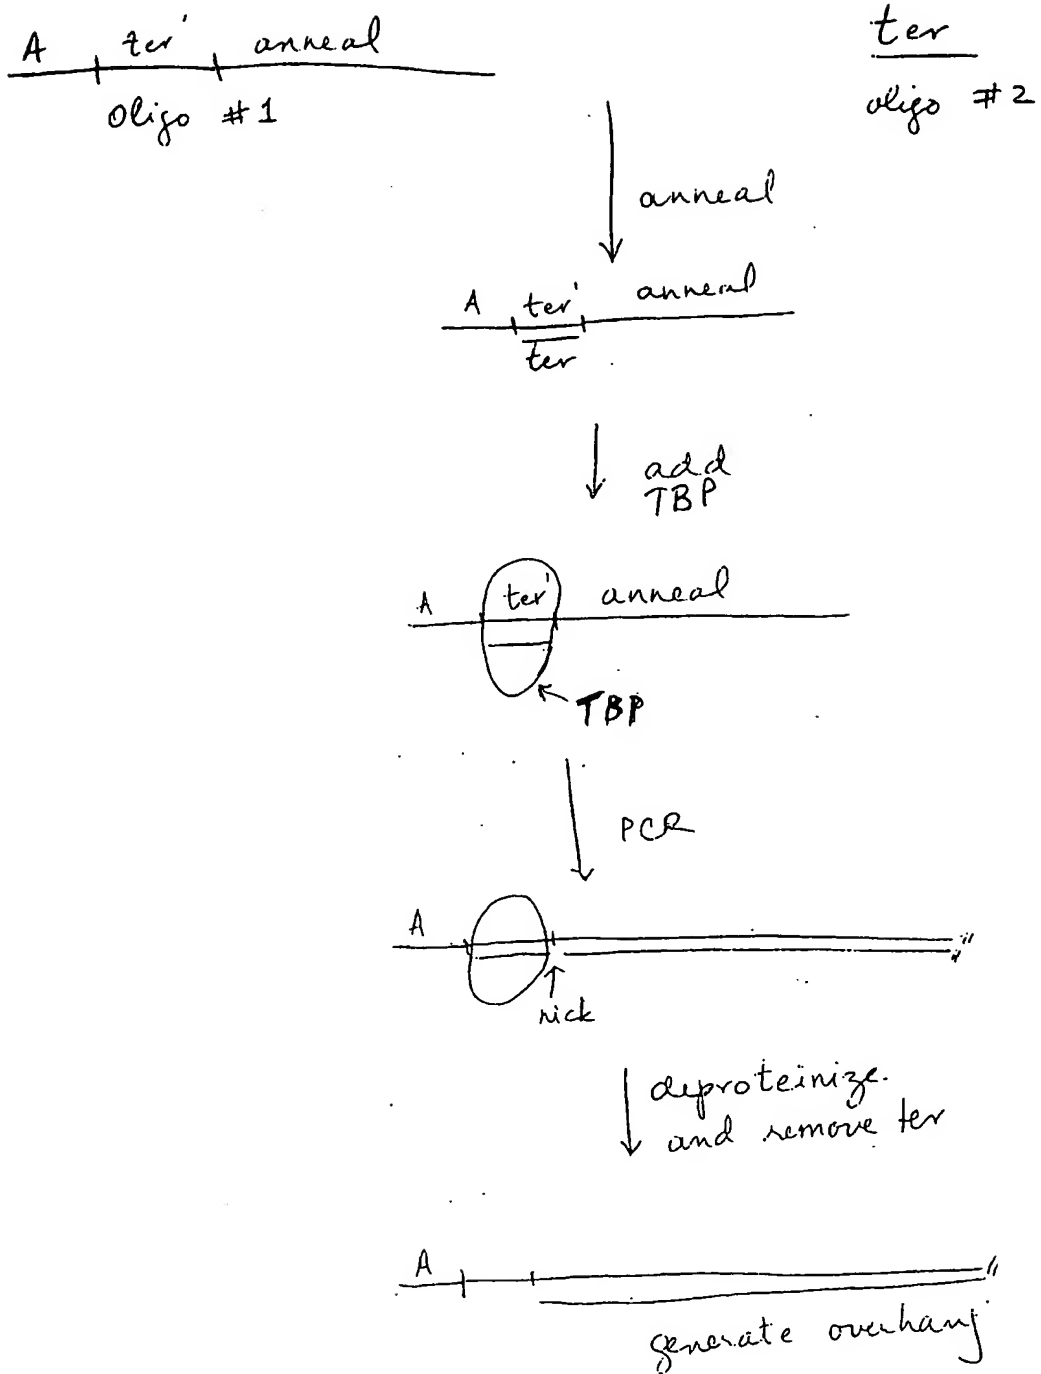 A ter' anneal
Oligo #1
ter
oligo #2
anneal
A ter' anneal
ter
add
TBP
A ter' anneal
TBP
PCR
A
nick
deproteinize.
and remove ter
A
generate overhang